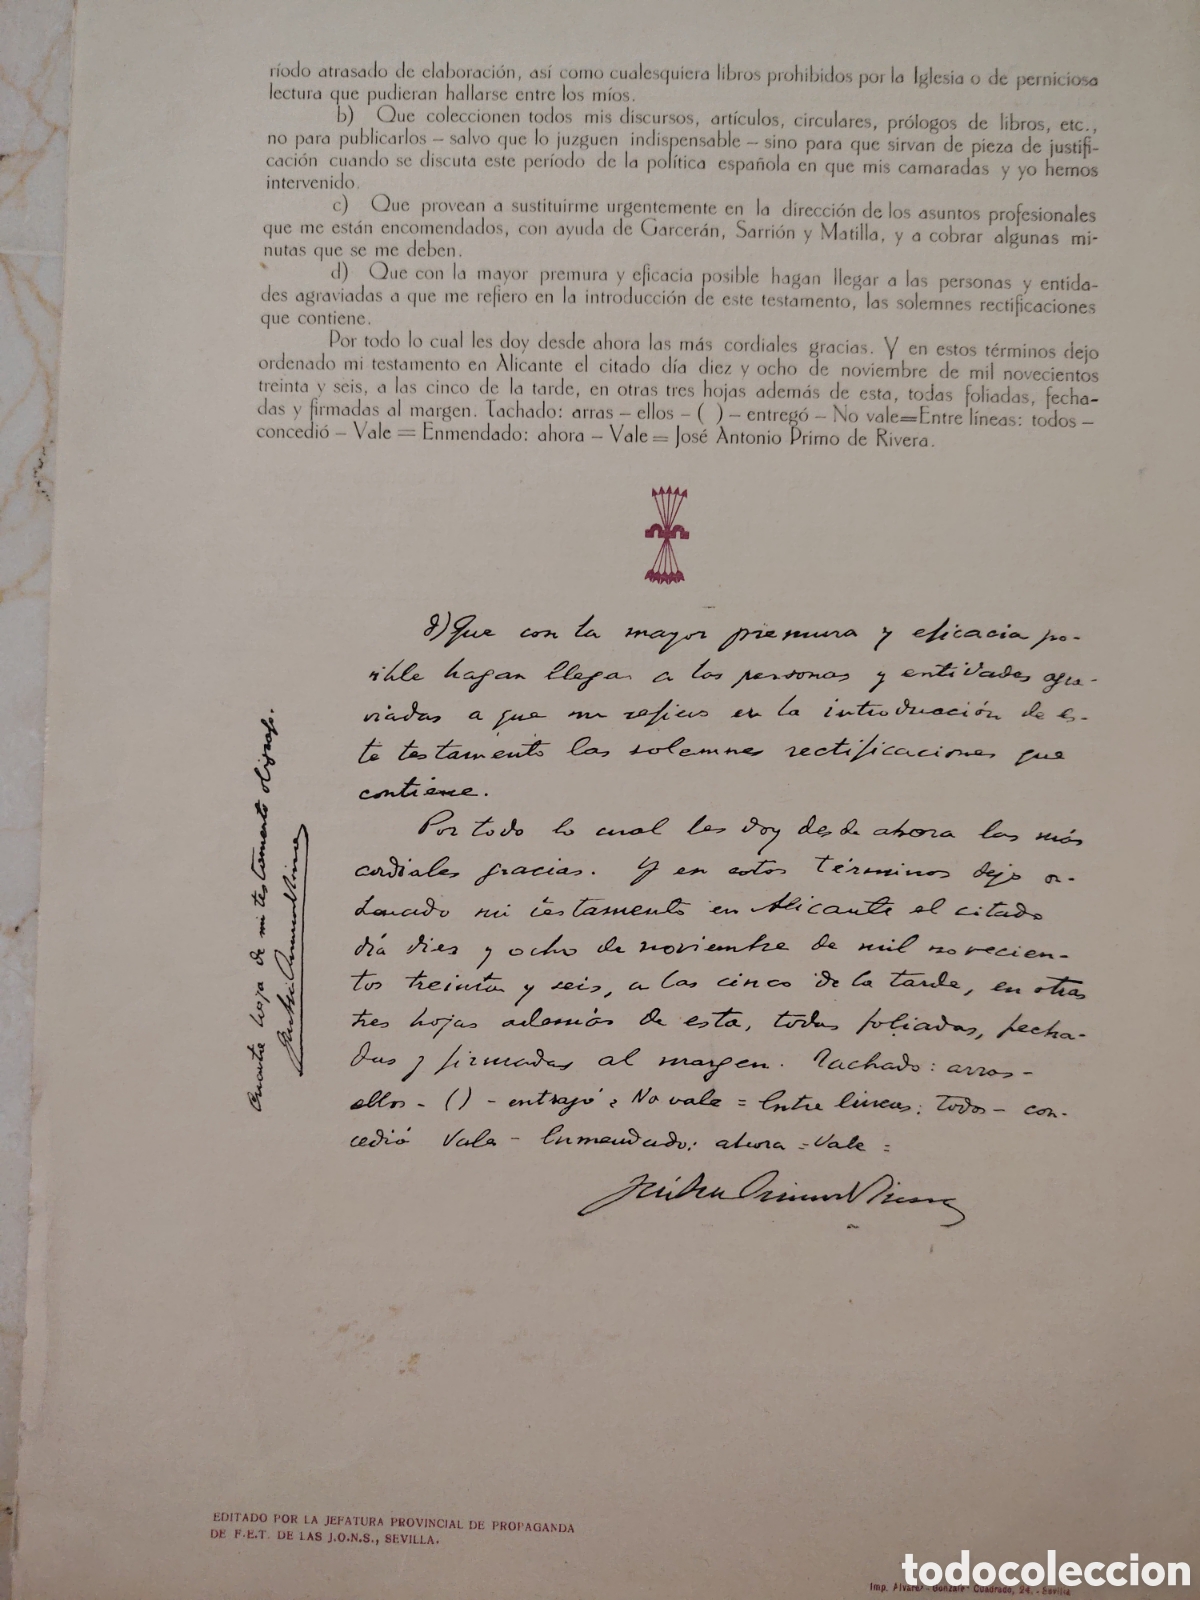 ríodo atrasado de elaboración, así como cualesquiera libros prohibidos por la Iglesia o de perniciosa
lectura que pudieran hallarse entre los míos.
b) Que coleccionen todos mis discursos, artículos, circulares, prólogos de libros, etc.,
no para publicarlos – salvo que lo juzguen indispensable – sino para que sirvan de pieza de justifi-
cación cuando se discuta este período de la política española en que mis camaradas y yo hemos
intervenido.
c) Que provean a sustituirme urgentemente en la dirección de los asuntos profesionales
que me están encomendados, con ayuda de Garcerán, Sarrión y Matilla, y a cobrar algunas mi-
nutas que se me deben.
d) Que con la mayor premura y eficacia posible hagan llegar a las personas y entida-
des agraviadas a que me refiero en la introducción de este testamento, las solemnes rectificaciones
que contiene.
Por todo lo cual les doy desde ahora las más cordiales gracias. Y en estos términos dejo
ordenado mi testamento en Alicante el citado día diez y ocho de noviembre de mil novecientos
treinta y seis, a las cinco de la tarde, en otras tres hojas además de esta, todas foliadas, fecha-
das y firmadas al margen. Tachado: arras – ellos – ( ) – entregó – No vale=Entre líneas: todos –
concedió – Vale = Enmendado: ahora – Vale = José Antonio Primo de Rivera.
d) Que con la mayor premura y eficacia po-
sible hagan llegar a las personas y entidades agra-
viadas a que me refiero en la introducción de es-
te testamento las solemnes rectificaciones que
contiene.
Por todo lo cual les doy desde ahora las más
cordiales gracias. Y en estos términos dejo or-
denado mi testamento en Alicante el citado
día dies y ocho de noviembre de mil novecien-
tos treinta y seis, a las cinco de la tarde, en otras
tres hojas además de esta, todas foliadas, fecha-
das y firmadas al margen. Tachado: arras –
ellos – ( ) – entregó = No vale = Entre lineas: todos – con-
cedió Vale – Enmendado: ahora = Vale =
Cuarta hoja de mi testamento ológrafo.
EDITADO POR LA JEFATURA PROVINCIAL DE PROPAGANDA
DE F.E.T. DE LAS J.O.N.S., SEVILLA.
todocoleccion
Imp. Cuadrado, 24. - Sevilla